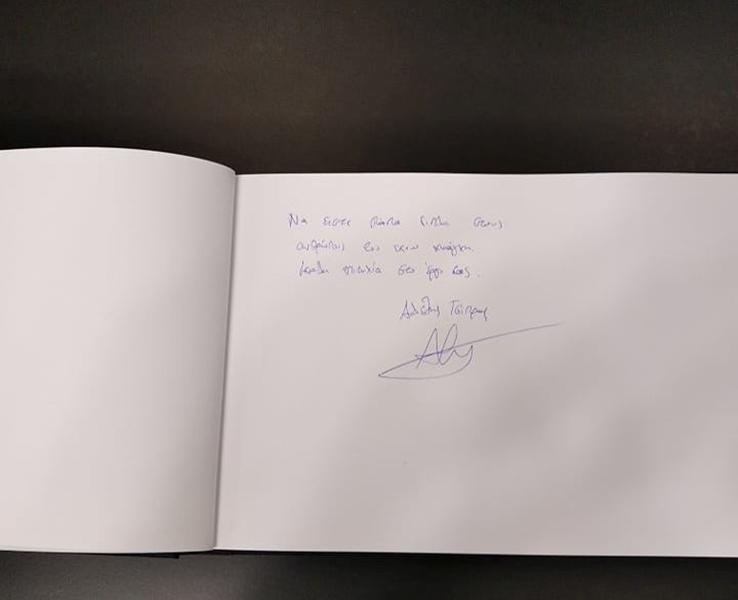 Να είστε πάντα δίπλα στους
ανθρώπους που έχουν ανάγκη.
Καλή επιτυχία στο έργο σας.
Αλέξης Τσίπρας